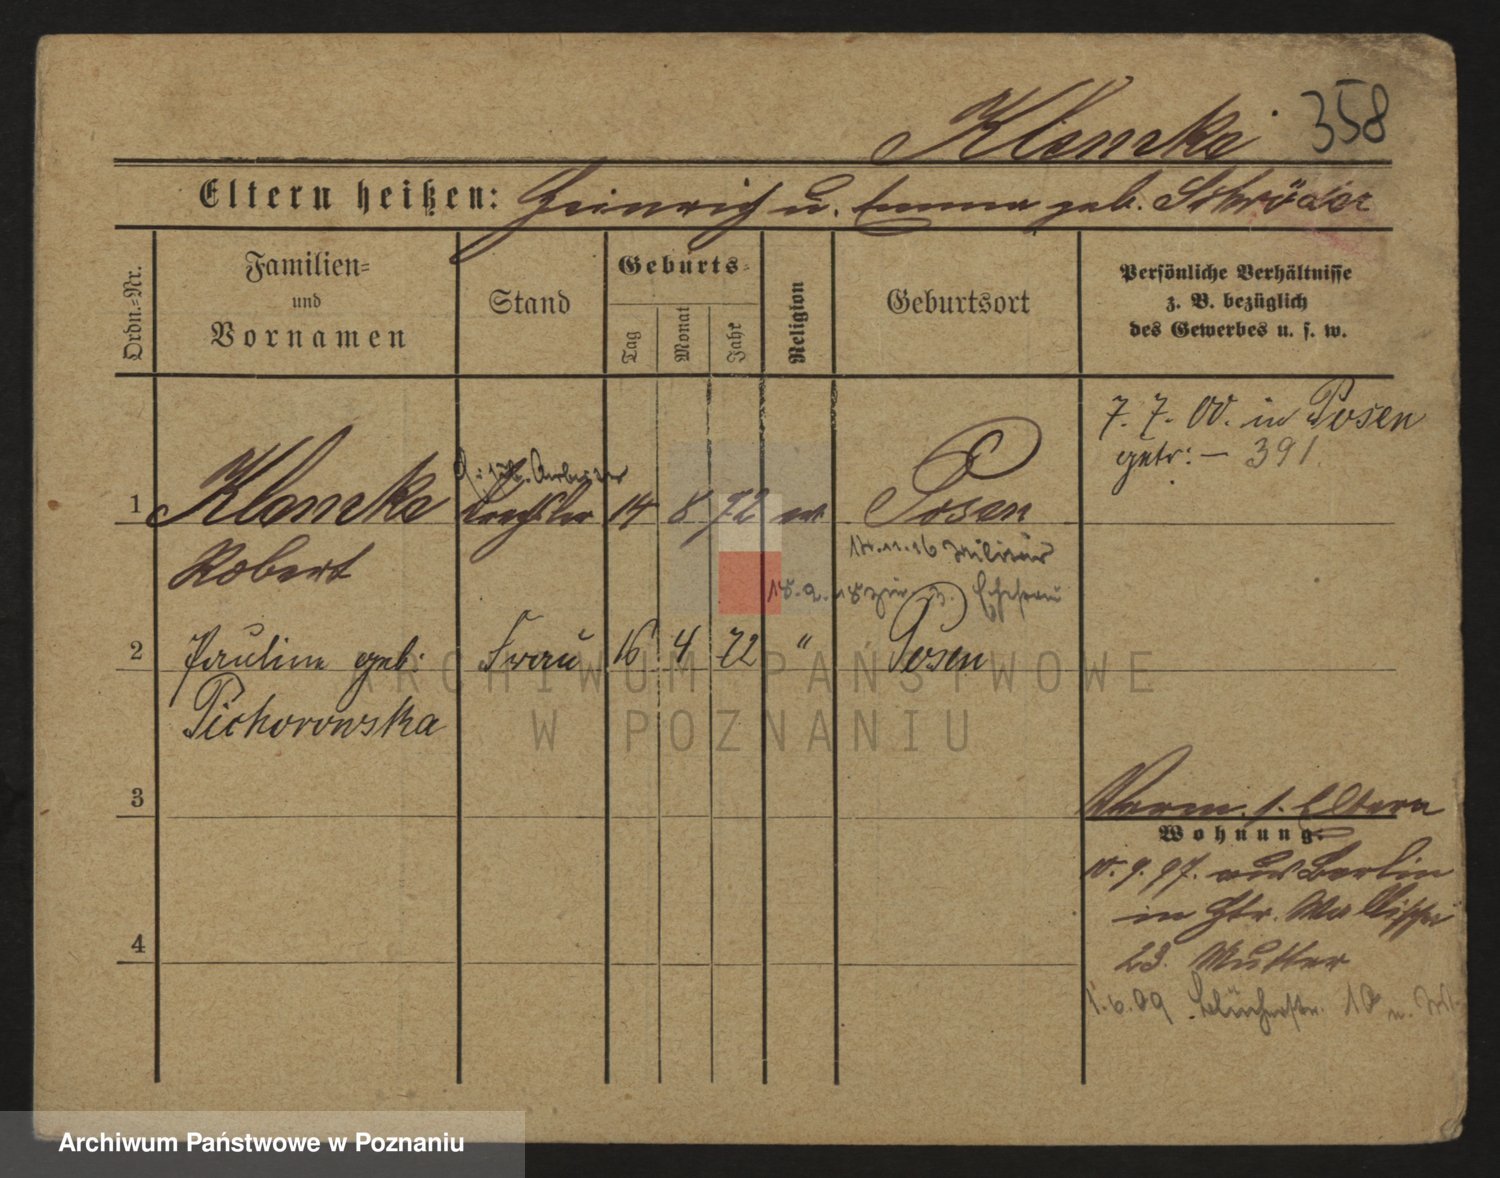 Klemcke 358
Eltern heißen: Heinrich u. Emma geb. Schröder
Ordn.-Nr.
Familien-
und
Vornamen
Stand
Geburts-
Tag
Monat
Jahr
Religion
Geburtsort
Persönliche Verhältnisse
z. B. bezüglich
des Gewerbes u. s. w.
7. 7. 00. in Posen
getr: – 391.
Arbeiter
1 Klemcke 14 8 72 ev Posen
Robert
14.11.16 Militär
18. 2. 18 zur
2 Pauline geb. Frau 16 4 72 " Posen
Pichorowska
3
Verm. s. Eltern
Wohnung.
10. 9. 97. aus Berlin
in Wallischei
23. Mutter
4
1.6.09 Blücherstr. 10
ARCHIWUM PAŃSTWOWE
W POZNANIU
Archiwum Państwowe w Poznaniu